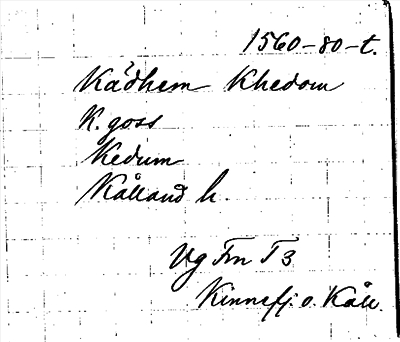 1560-80-t.
Kådhem Khedom
K. goss
Kedum
Kålland h.
Vg Frn T 3
Kinnefj. o. Kåll.